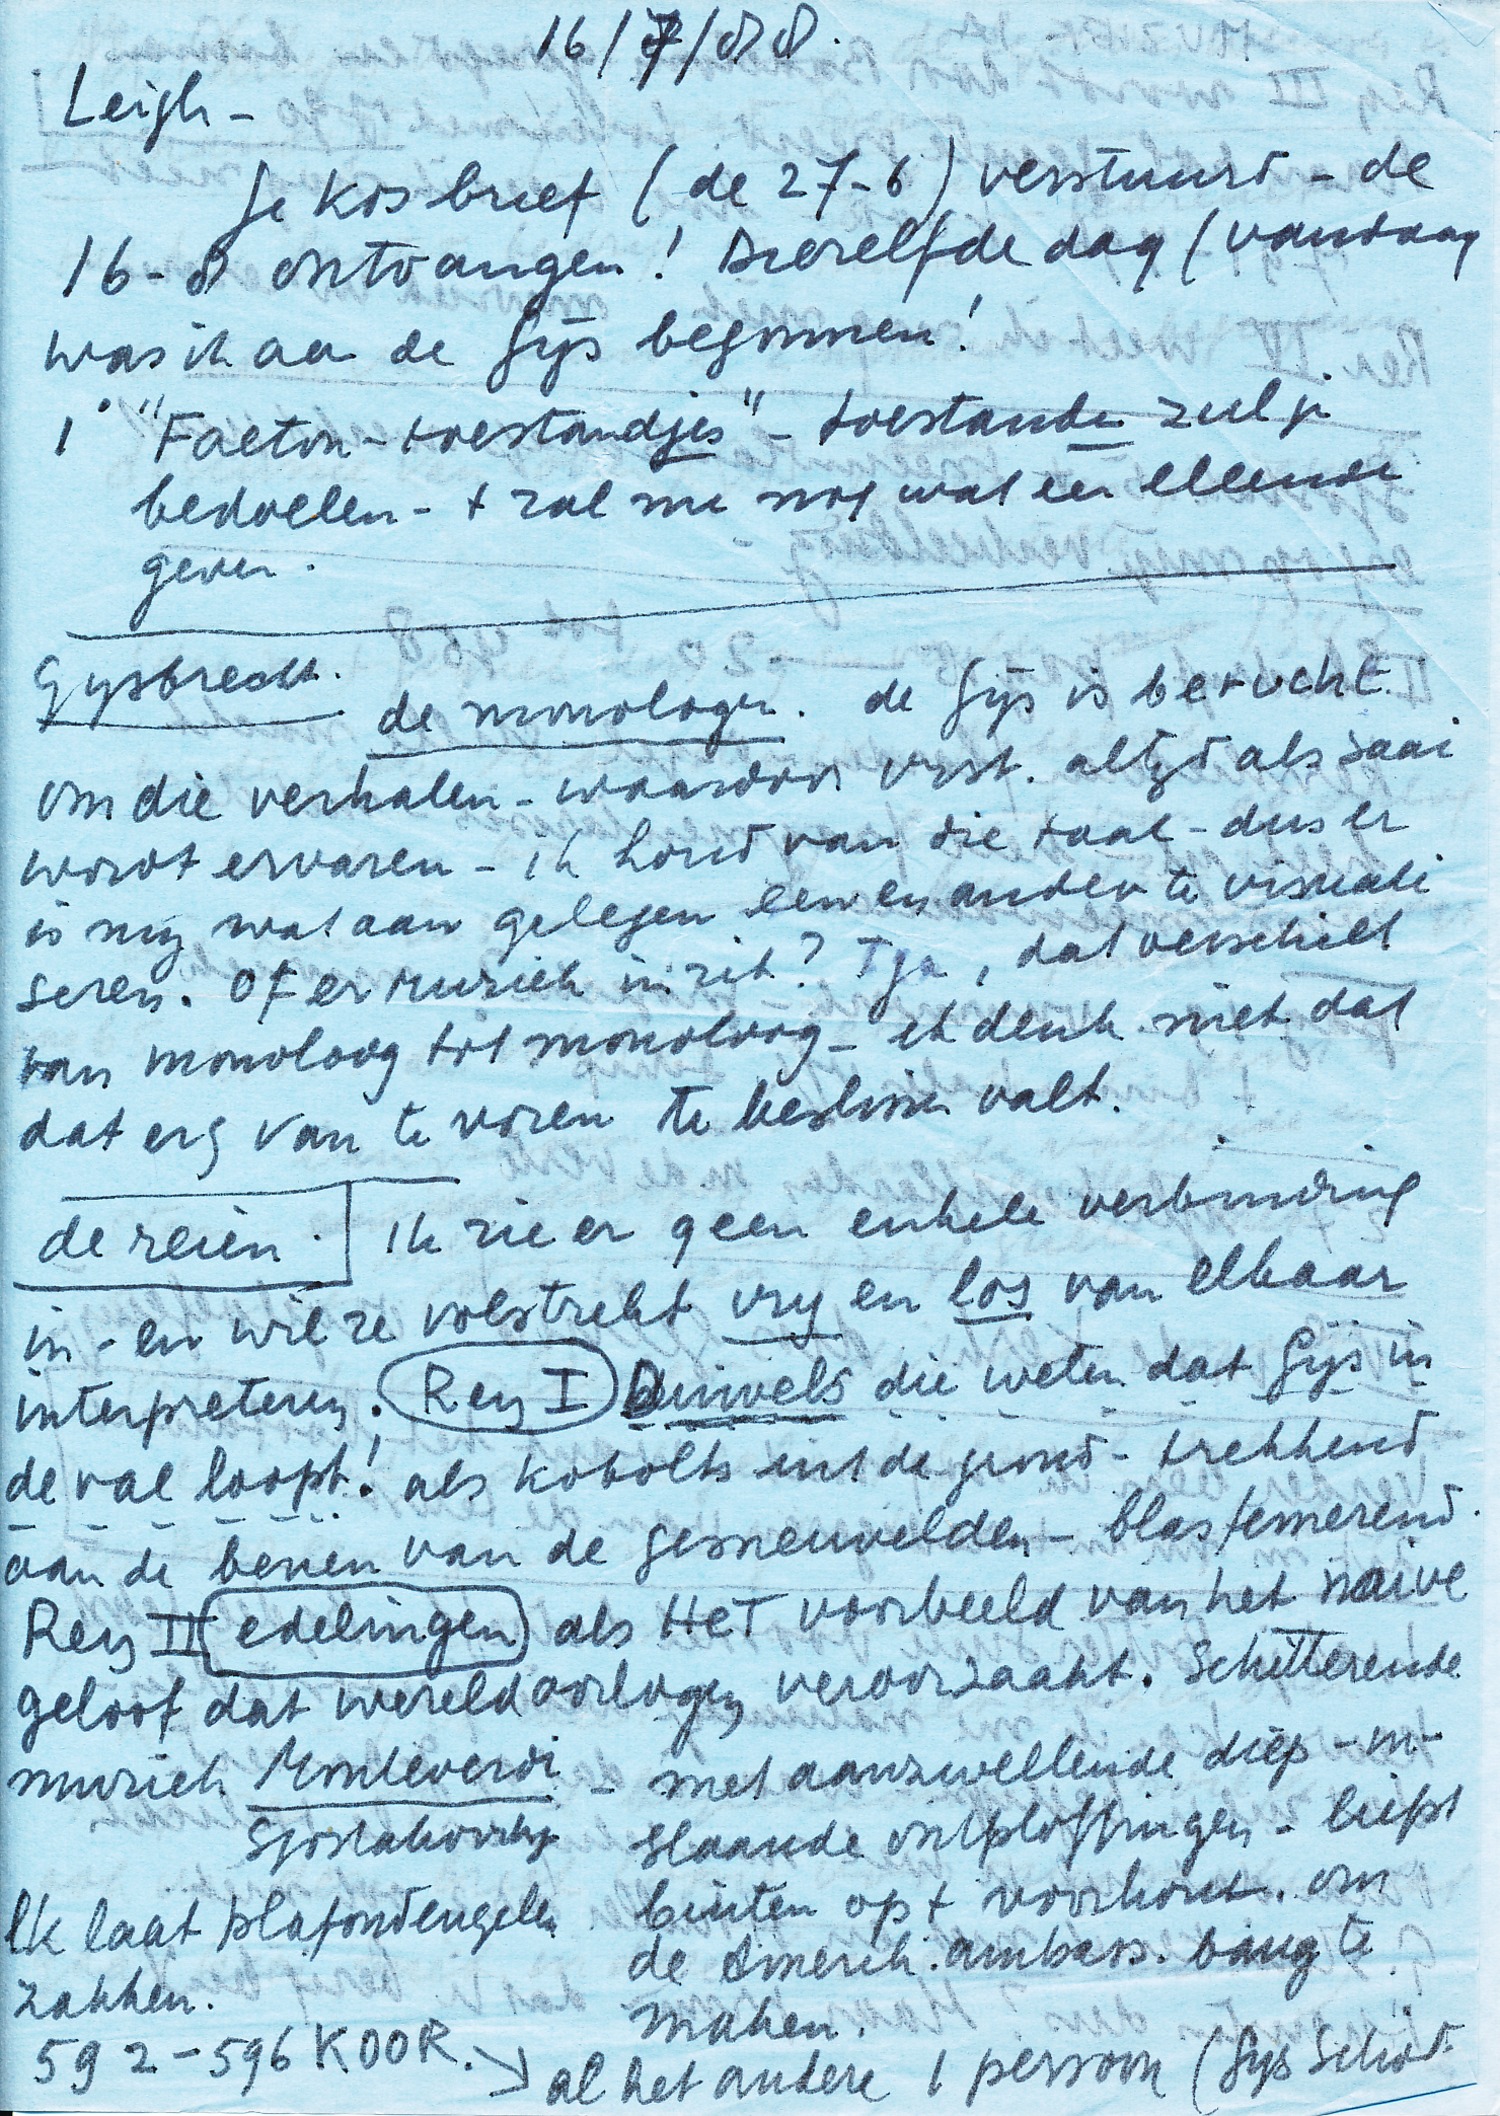 16/7/88.
Leigh -
Je kosbrief (de 27-6) verstuurd - de
16-8 ontvangen! Diezelfde dag (vandaag
was ik aan de Gijs begonnen!
1° "Faeton-toestandjes" - toestanden zul je
bedoelen - + zal me nog wat een ellende
geven.
Gysbrecht.
de monologen. de Gijs is berucht
om die verhalen - waardoor vrst. altijd als saai
wordt ervaren - ik houd van die taal - dus er
is mij wat aan gelegen een en ander te visuali
seren. Of er muziek in zit? Tja, dat verschilt
van monoloog tot monoloog - ik denk niet dat
dat erg van te voren te beslissen valt.
de reien. Ik zie er geen enkele verbinding
in - en wil ze volstrekt vry en los van elkaar
interpreteren. Rey I Duivels die weten dat Gijs in
de val loopt! als kobolts uit de grond - trekkend
aan de benen van de gesneuvelden - blasfemerend.
Rey II edelingen als HET voorbeeld van het naive
geloof dat wereldoorlogen veroorzaakt. Schitterende
muziek Monteverdi - met aanzwellende diep-in-
Sjostakovitsj slaande ontploffingen - liefst
Ik laat plafondengelen buiten op + voorhout. om
zakken. de Amerik. ambass. bang te
maken.
592-596 KOOR. → al het andere 1 persoon (Gys Schol-